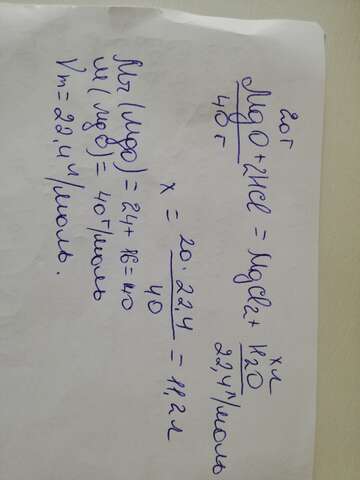 20г х л
MgO + 2HCl = MgCl2 + H2O
40г 22,4 л/моль
х = 20 · 22,4 / 40 = 11,2 л
Mr (MgO) = 24 + 16 = 40
M (MgO) = 40 г/моль
Vm = 22,4 л/моль.